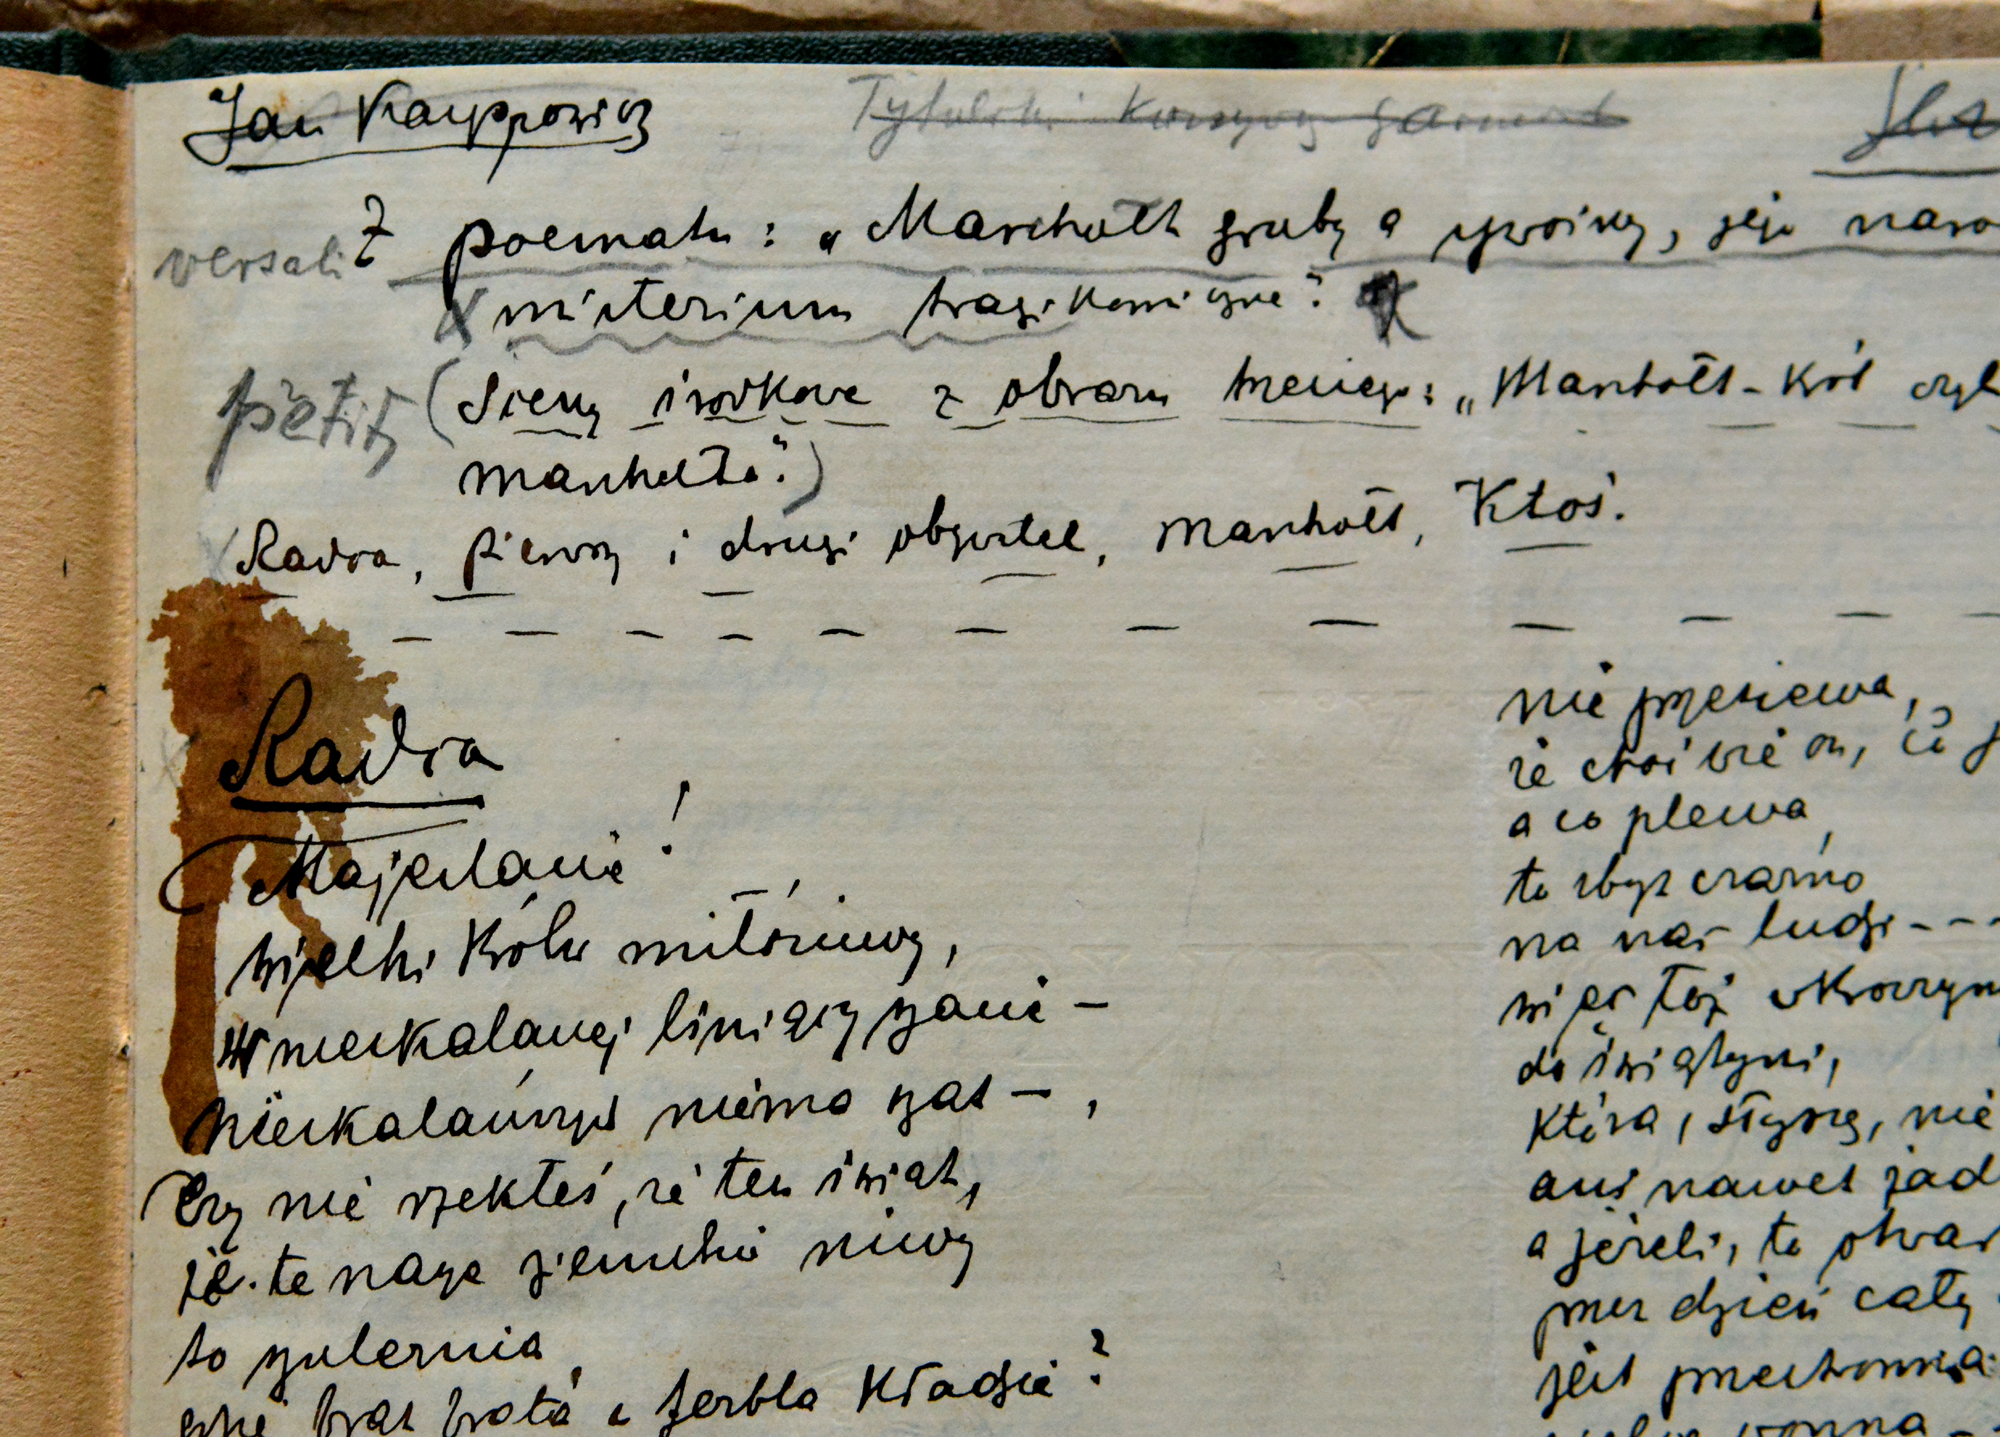 Jan Kasprowicz
Z poematu: „Marchołt gruby a sprośny, jego naro
versali
misterium tragikomiczne".
petit
(Sceny środkowe z obrazu trzeciego: „Marchołt-król czyl
marchołta".)
Radca, pierwszy i drugi obywatel, Marchołt, Ktoś.
Radca
Majestacie!
wielki królu miłościwy,
nieskalanej linią szacie –
nieskalany mimo szat –,
Czy nie rzekłeś, że ten świat,
że te nasze ziemskie niwy
to szulernia,
gdzie brat brata kładzie?
nie przesiewa,
że choć wie on, co
a co plewa,
to zbyt czarno
na nas ludzi - - -
więc też wkroczym
do świątyni,
która, słyszę, nie
ani nawet jad
a jeżeli, to otwar
przez dzień cały
jest